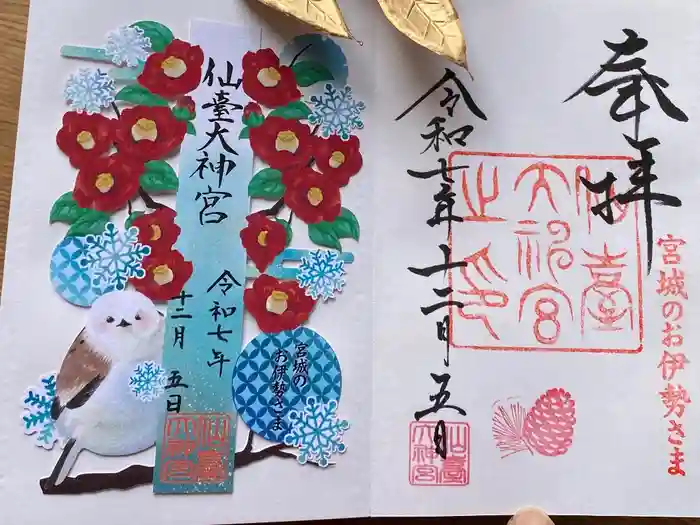 奉拝
宮城のお伊勢さま
仙臺大神宮之印
令和七年十二月五日
仙臺大神宮
仙臺大神宮
令和七年
十二月五日
宮城の
お伊勢さま
仙臺大神宮